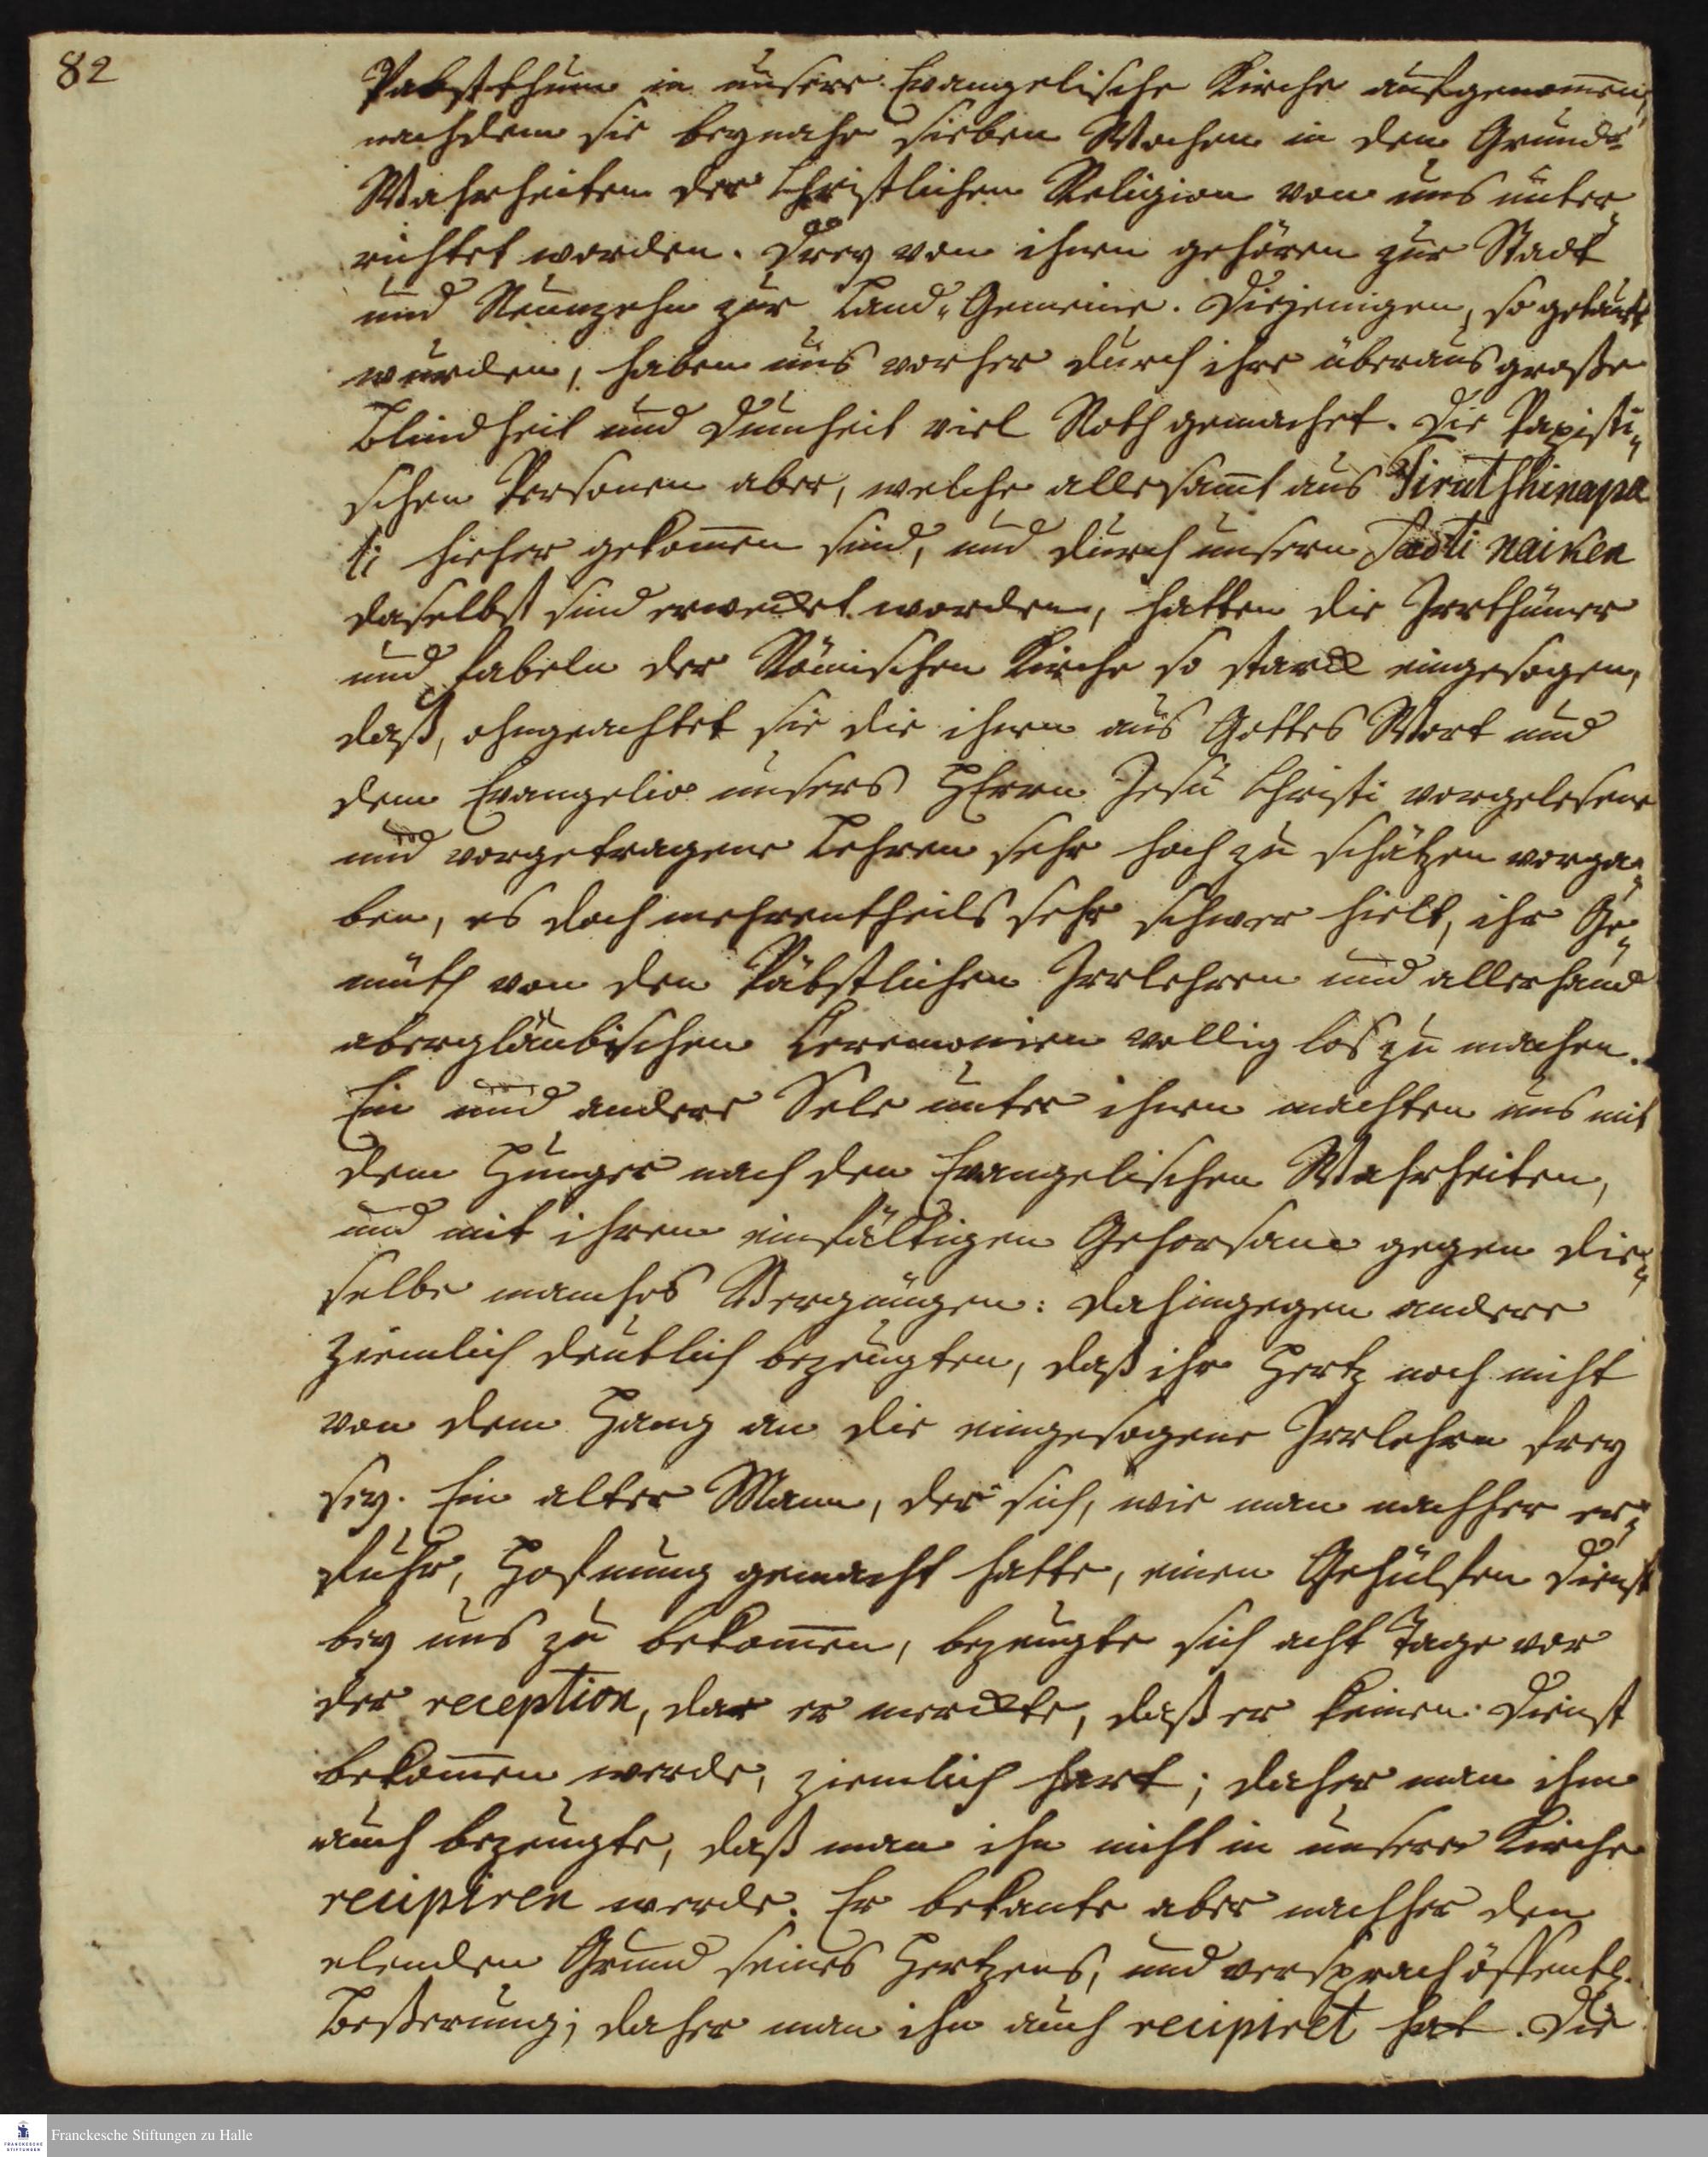 82
Pabstthum in unsere Evangelische Kirche aufgenom̄en,
nachdem sie beynahe sieben Wochen in den Grund-
Wahrheiten der Christlichen Religion von uns unter-
richtet worden. Drey von ihnen gehören zur Stadt
und Neunzehn zur Land-Gemeine. Diejenigen, so getauft
wurden, haben uns vorher durch ihre überaus große
Blindheit und Dumheit viel Noth gemachet. Die Papisti-
schen Personen aber, welche allesam̄t aus Tirutshinapa
li hieher gekom̄en sind, und durch unsern Sadti naiken
daselbst sind erwecket worden, hatten die Irrthümer
und Fabeln der Römischen Kirche so starck eingesogen,
daß, ohngeachtet sie die ihnen aus Gottes Wort und
dem Evangelio unsers HErrn Jesu Christi vorgelesene
und vorgetragene Lehren sehr hoch zu schätzen vorga-
ben, es doch mehrentheils sehr schwer hielt, ihr Ge-
müth von den Päbstlichen Irrlehren und allerhand
abergläubischen Ceremonien vollig los zu machen.
Ein und andere Sele unter ihnen machten uns mit
dem Hunger nach den Evangelischen Wahrheiten,
und mit ihrem einfältigen Gehorsam gegen die-
selbe manches Vergnügen: dahingegen andere
ziemlich deutlich bezeugten, daß ihr Hertz noch nicht
von dem Hang an die eingesogene Irrlehren frey
sey. Ein alter Mann, der sich, wie man nachher er-
fuhr, Hofnung gemacht hatte, einen Gehülfen Dienst
bey uns zu bekom̄en, bezeugte sich acht Tage vor
der reception, dar er merckte, daß er keinen Dienst
bekom̄en werde, ziemlich hart; daher man ihm
auch bezeugte, daß man ihn nicht in unsere Kirche
recipiren werde. Er bekante aber nachher den
elenden Grund seines Hertzens, und versprach öffentl.
Beßerung; daher man ihn auch recipiret hat. Die
Franckesche Stiftungen zu Halle
FRANCKESCHE STIFTUNGEN